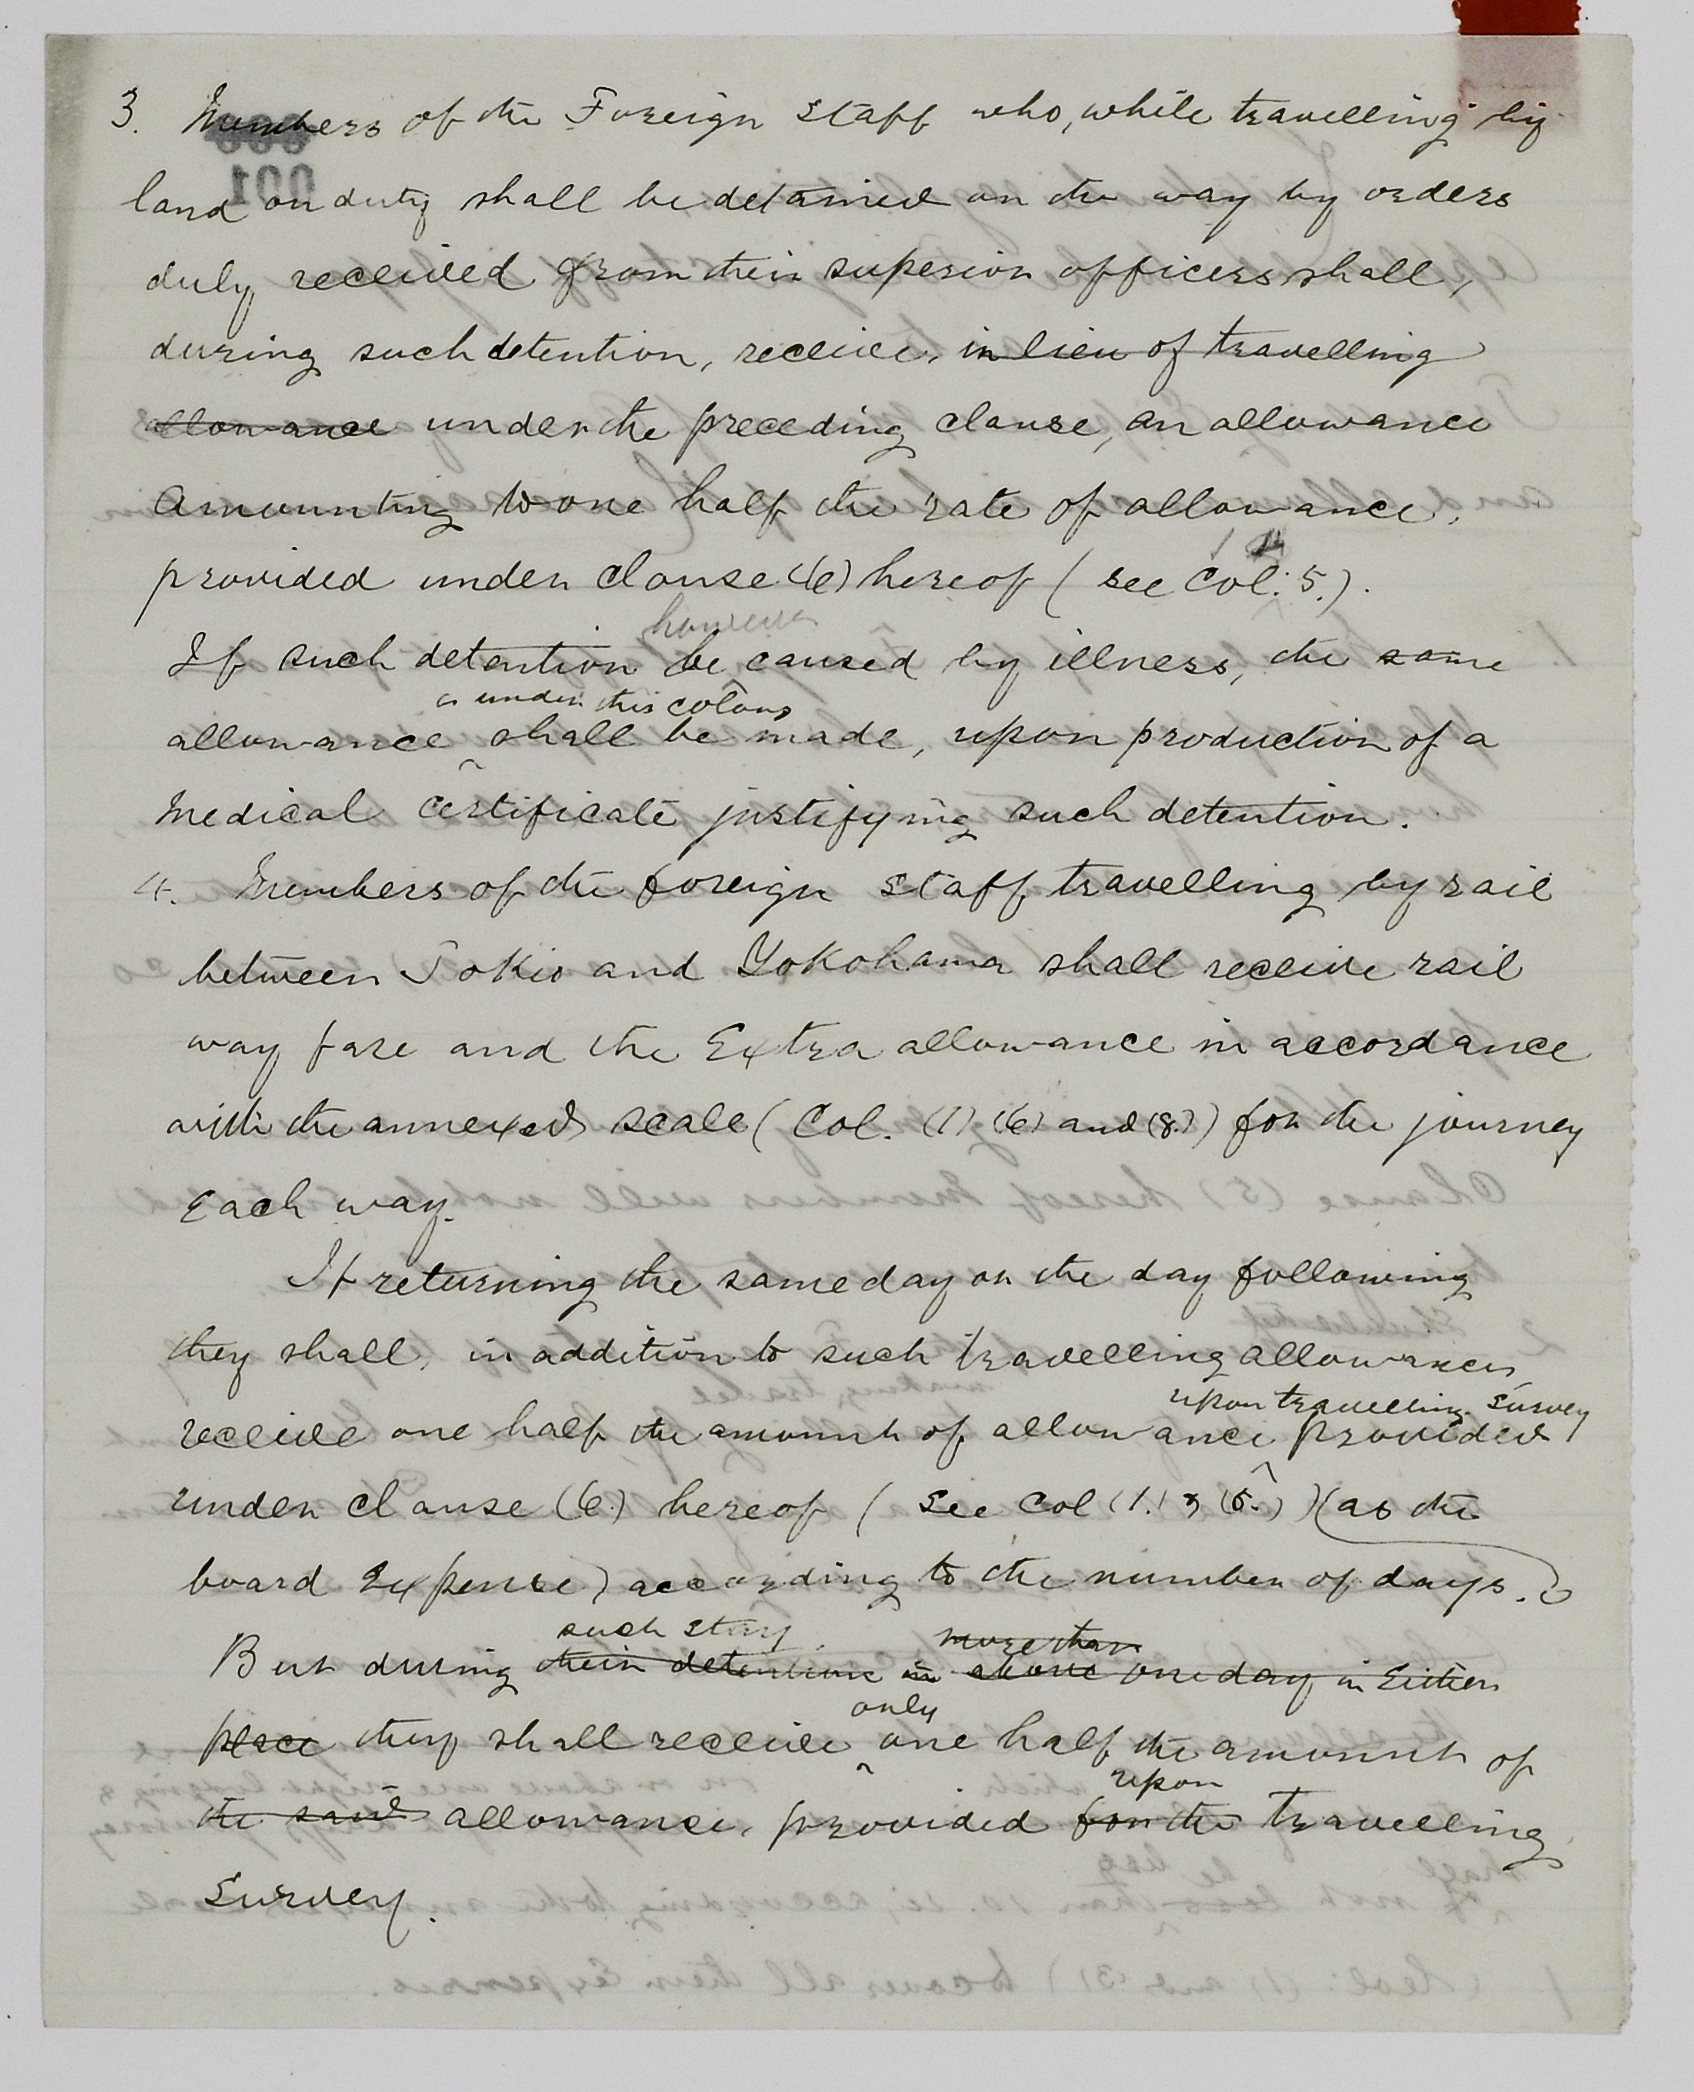 3. Members of the Foreign staff who, while travelling by
land on duty shall be detained on the way by orders
duly received from their superior officers, shall,
during such detention, receive, in lieu of travelling
allowance under the preceding clause, an allowance
amounting to one half the rate of allowance,
provided under clause (6) hereof (see Col: 5.).
however
If such detention be caused by illness, the same
under this column
allowance shall be made, upon production of a
medical certificate justifying such detention.
4. Members of the foreign staff travelling by rail
between Tokio and Yokohama shall receive rail
way fare and the Extra allowance in accordance
with the annexed scale (Col. (1) (6) and (8.)) for the journey
Each way.
If returning the same day or the day following
they shall, in addition to such travelling allowances,
upon travelling survey
receive one half the amount of allowance provided
under clause (6.) hereof (see Col (1.) & (5.)) (as the
board Expense) according to the number of days.
such stay more than
But during their detention in above one day in Either
only
place they shall receive one half the amount of
upon
the said allowance, provided for the travelling
Survey.